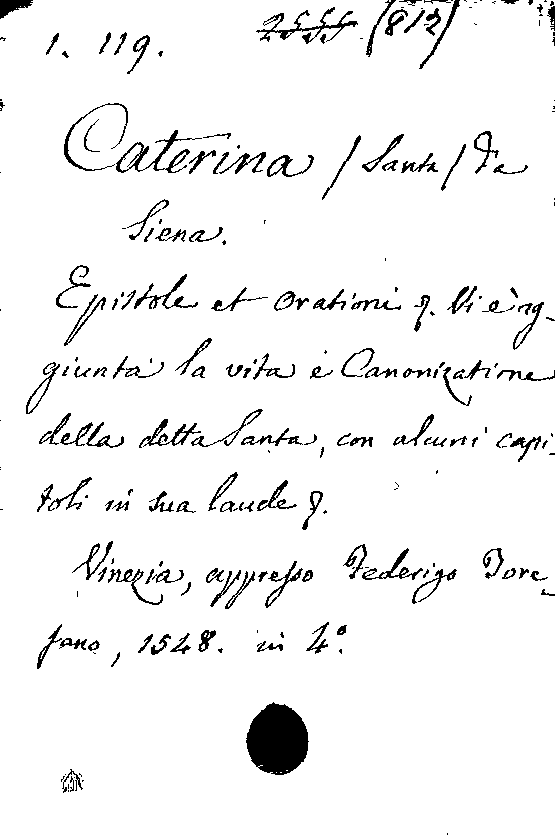 1. 119. 2555 (812)
Caterina /Santa/ da
Siena.
Epistole et orationi &. Vi è ag-
giunta la vita è Canonizatione
della detta Santa, con alcuni capi-
toli in sua laude &.
Vinezia, appresso Federigo Torre-
sano, 1548. in 4°.